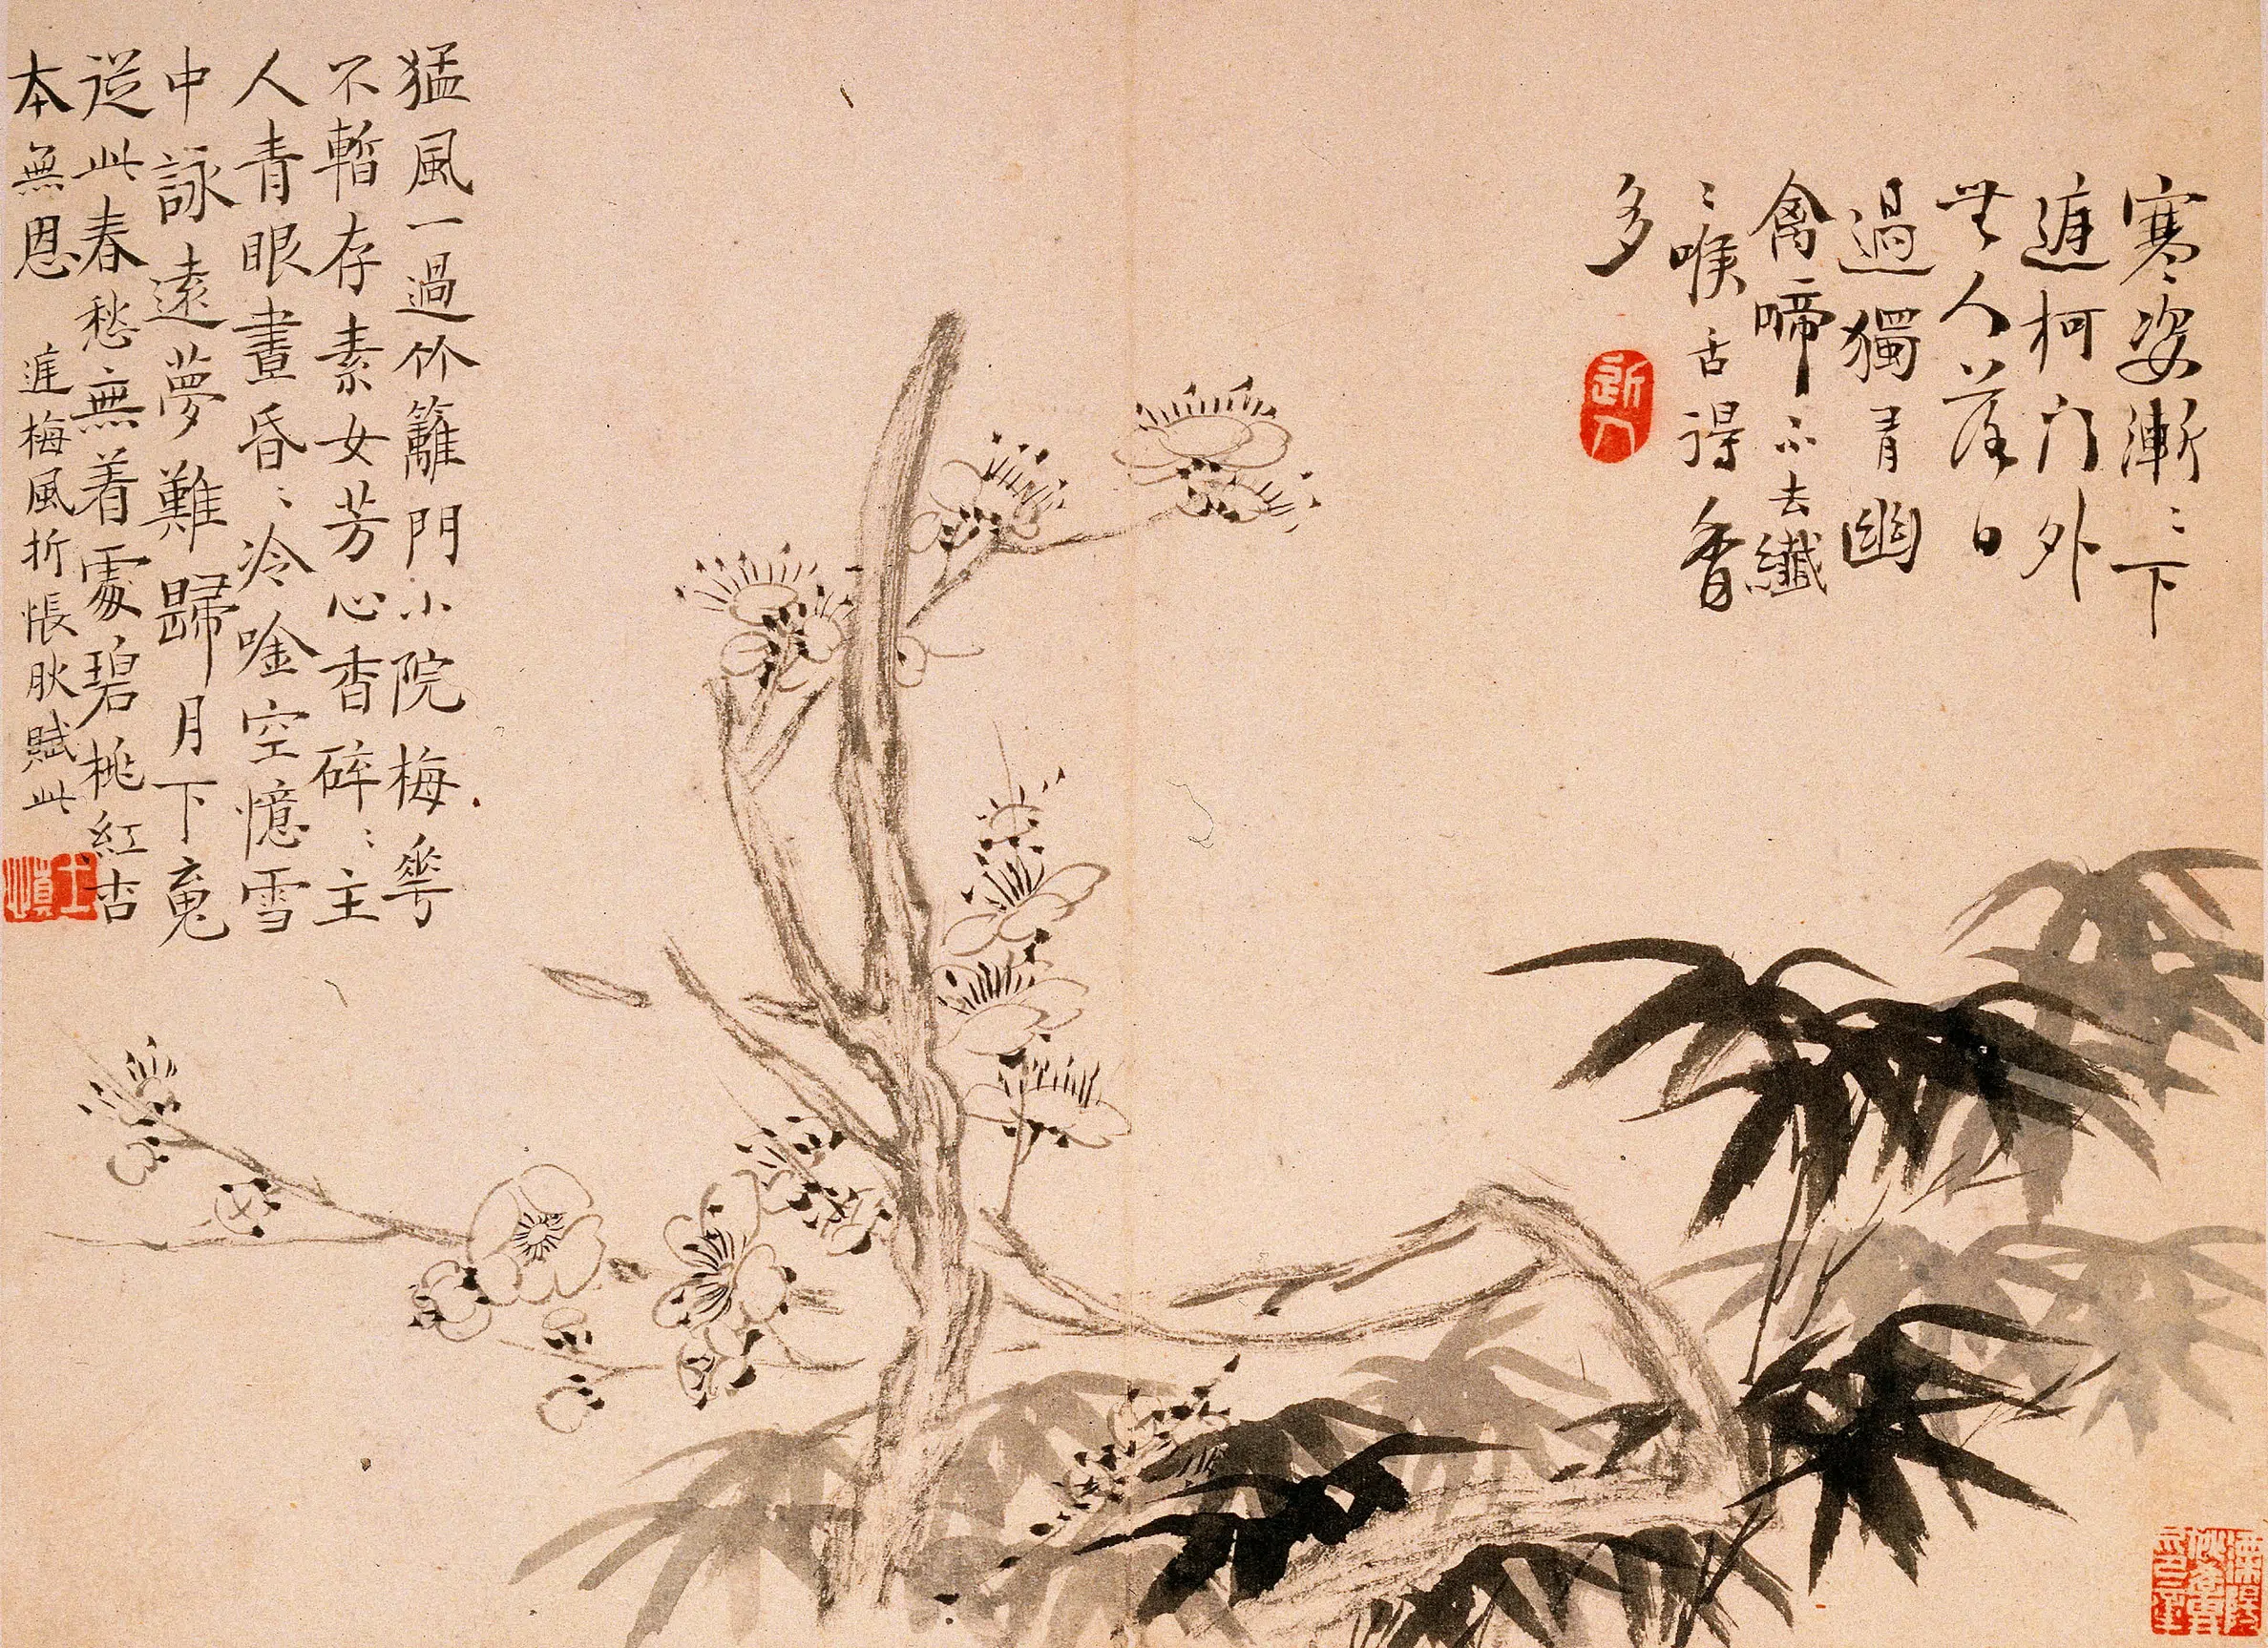 寒姿漸〻下
庭柯門外
無人落日
過獨有幽
禽啼不去纖
〻喉舌得香
多
猛風一過竹籬門小院梅華
不暫存素女芳心香碎〻主
人青眼晝昏〻冷唫空憶雪
中詠遠夢難歸月下䰟
從此春愁無着處碧桃紅杏
本無恩 庭梅風折悵肰賦此